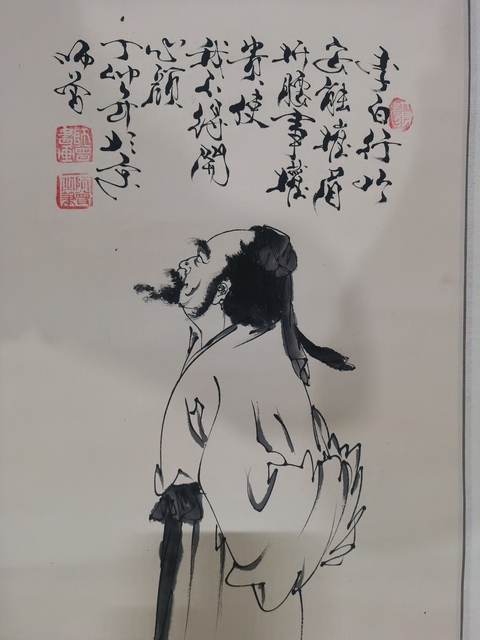 李白行吟
安能摧眉
折腰事权
贵使
我不得開
心颜
丁
師曾